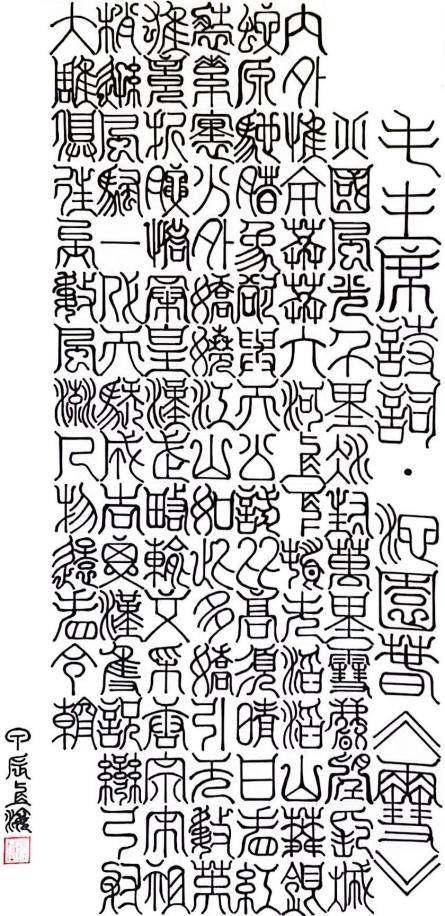 毛主席詩詞·沁園春《雪》
北國風光千里冰封萬里雪飄望長城
內外惟余莽莽大河上下頓失滔滔山舞銀
蛇原馳腊象欲與天公試比高須晴日看紅
裝素裹分外嬌嬈江山如此多嬌引無數英
雄競折腰惜秦皇漢武略輸文采唐宗宋祖
稍遜風騷一代天驕成吉思漢隻識彎弓射
大雕俱往矣數風流人物還看今朝
甲辰上海